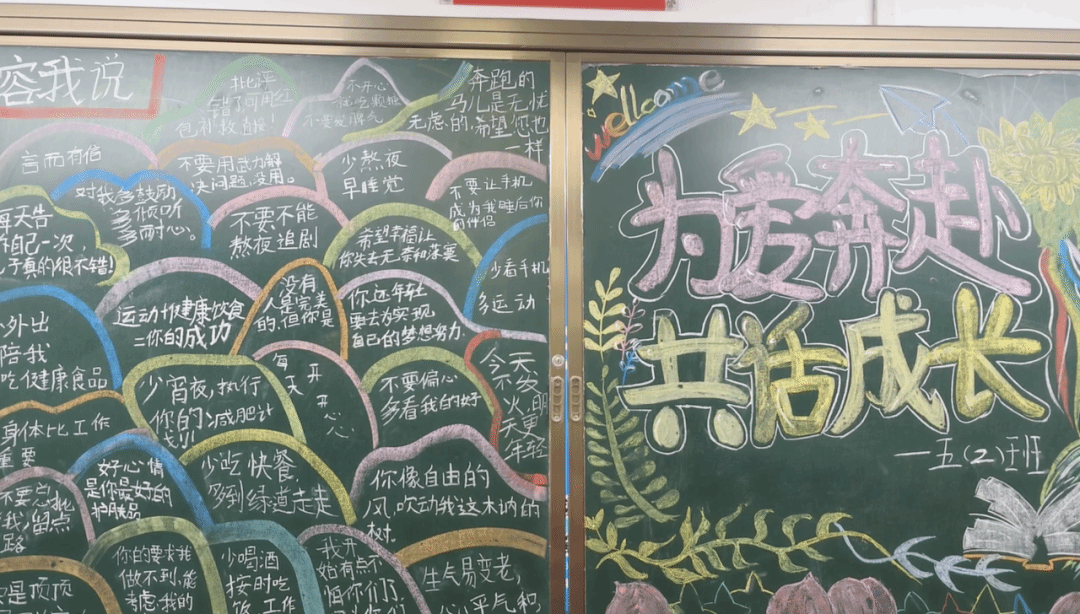 容我说
批评
错了可用红
包补救直接!
不开心
不要发脾气
奔跑的
马儿是无忧
无虑的,希望您也
一样
言而有信
不要用武力解
决问题,没用。
少熬夜
早睡觉
不要让手机
成为我睡后你
的伴侣
对我多鼓励
多倾听
多耐心。
不要不能
熬夜追剧
希望幸福让
每天告
自己一次,
真的很不错!
少看手机
多运动
运动+健康饮食
=你的成功
没有
人是完美
的,但你是
你还年轻
要去为实现
自己的梦想努力
外出
陪我
吃健康食品
少宵夜,执行
你的减肥计
划!
每
天
开
开
心
心
不要偏心
多看我的好
今天
不发
火,明
天更
年轻
身体比工作
重要
好心情
是你最好的
护肤品
少吃快餐,
多到绿道走走
你像自由的
风,吹动我这木讷的
树.
不要总批
我,留点
路
你的要求我
做不到,能
考虑我的
少喝酒
按时吃
饭,工作
生气易变老,
心平气和
是顶顶
Wellcome
为爱奔赴
共话成长
—五(2)班